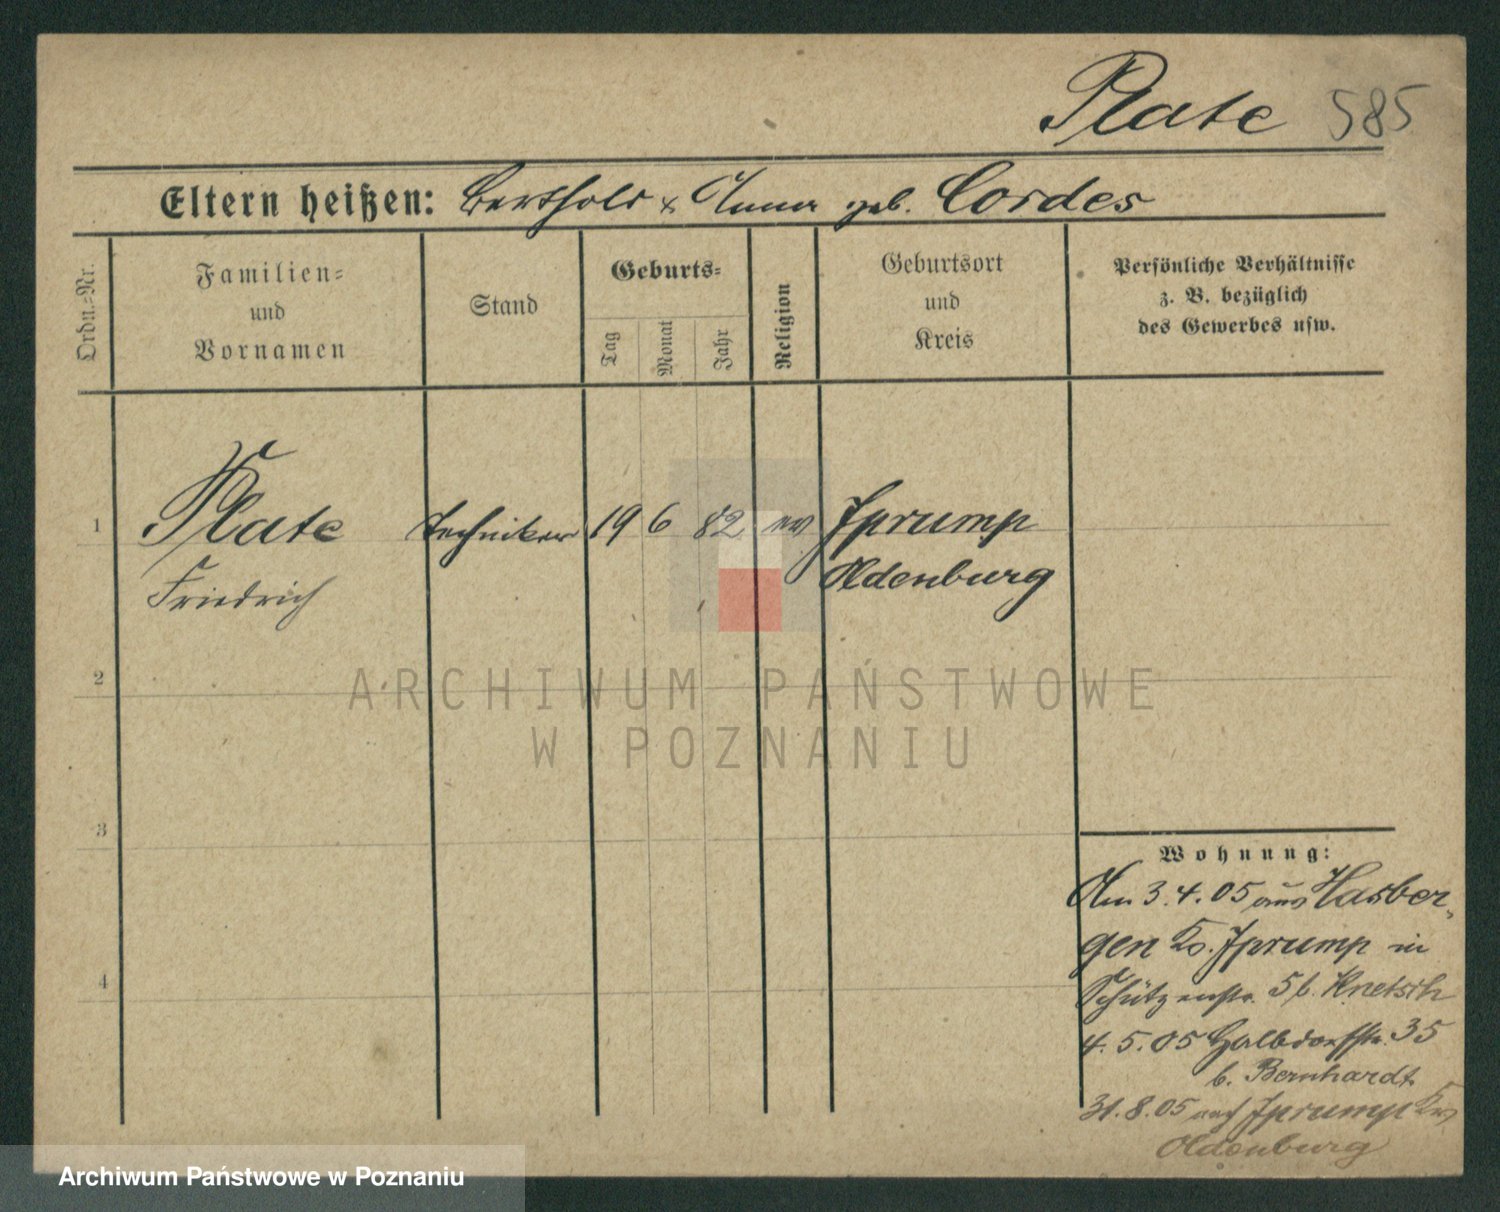 Plate 585
Eltern heißen: Berthold & Anna geb. Cordes
Ordn.-Nr.
Familien-
und
Vornamen
Stand
Geburts-
Tag
Monat
Jahr
Religion
Geburtsort
und
Kreis
Persönliche Verhältnisse
z. B. bezüglich
des Gewerbes usw.
1 Plate Techniker 19 6 82 ev Iprump
Friedrich Oldenburg
2
3
4
Wohnung:
Am 3.4.05 aus Hasber-
gen Kr. Iprump in
Schützenstr. 5 b. Knetsch
4.5.05 Halbdorfstr. 35
b. Bernhardt
31.8.05 nach Iprump Kr
Oldenburg
ARCHIWUM PAŃSTWOWE
W POZNANIU
Archiwum Państwowe w Poznaniu